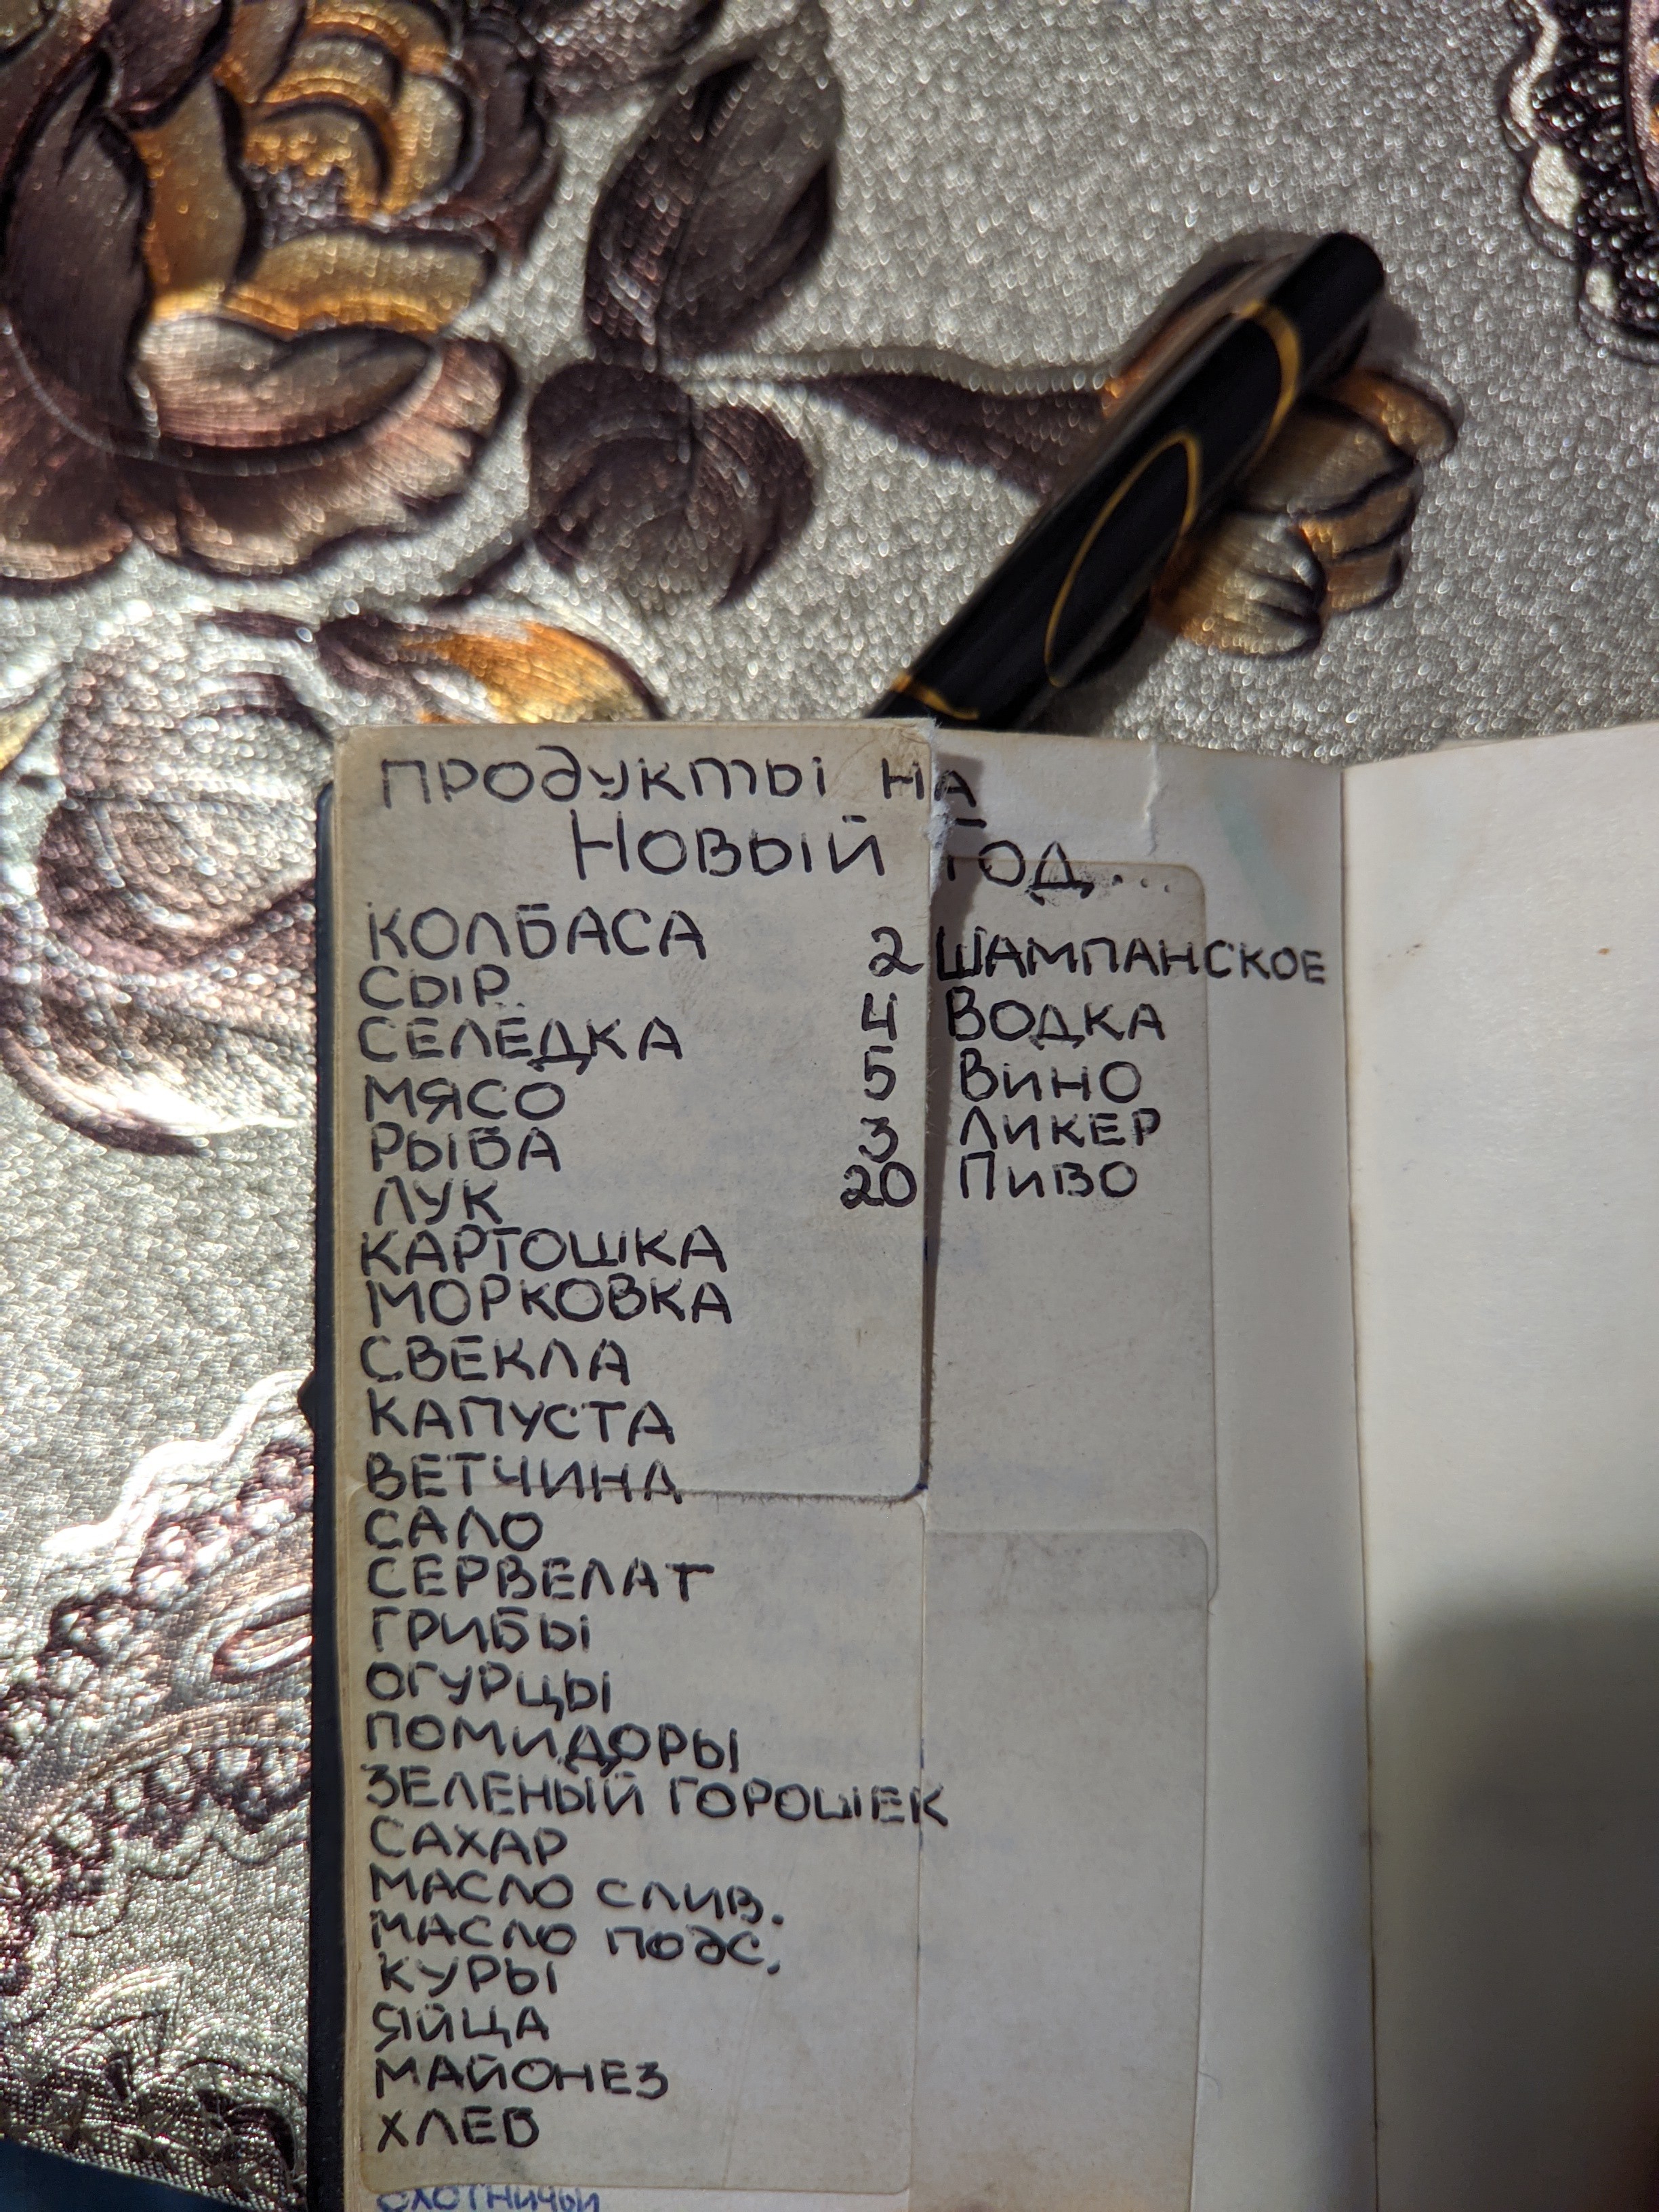 ПРОДУКТЫ НА
НОВЫЙ ГОД...
КОЛБАСА
СЫР
СЕЛЁДКА
МЯСО
РЫБА
ЛУК
КАРТОШКА
МОРКОВКА
СВЕКЛА
КАПУСТА
ВЕТЧИНА
САЛО
СЕРВЕЛАТ
ГРИБЫ
ОГУРЦЫ
ПОМИДОРЫ
ЗЕЛЕНЫЙ ГОРОШЕК
САХАР
МАСЛО СЛИВ.
МАСЛО ПОДС.
КУРЫ
ЯЙЦА
МАЙОНЕЗ
ХЛЕБ
ОХОТНИЧЬИ
2 ШАМПАНСКОЕ
4 ВОДКА
5 ВИНО
3 ЛИКЕР
20 ПИВО